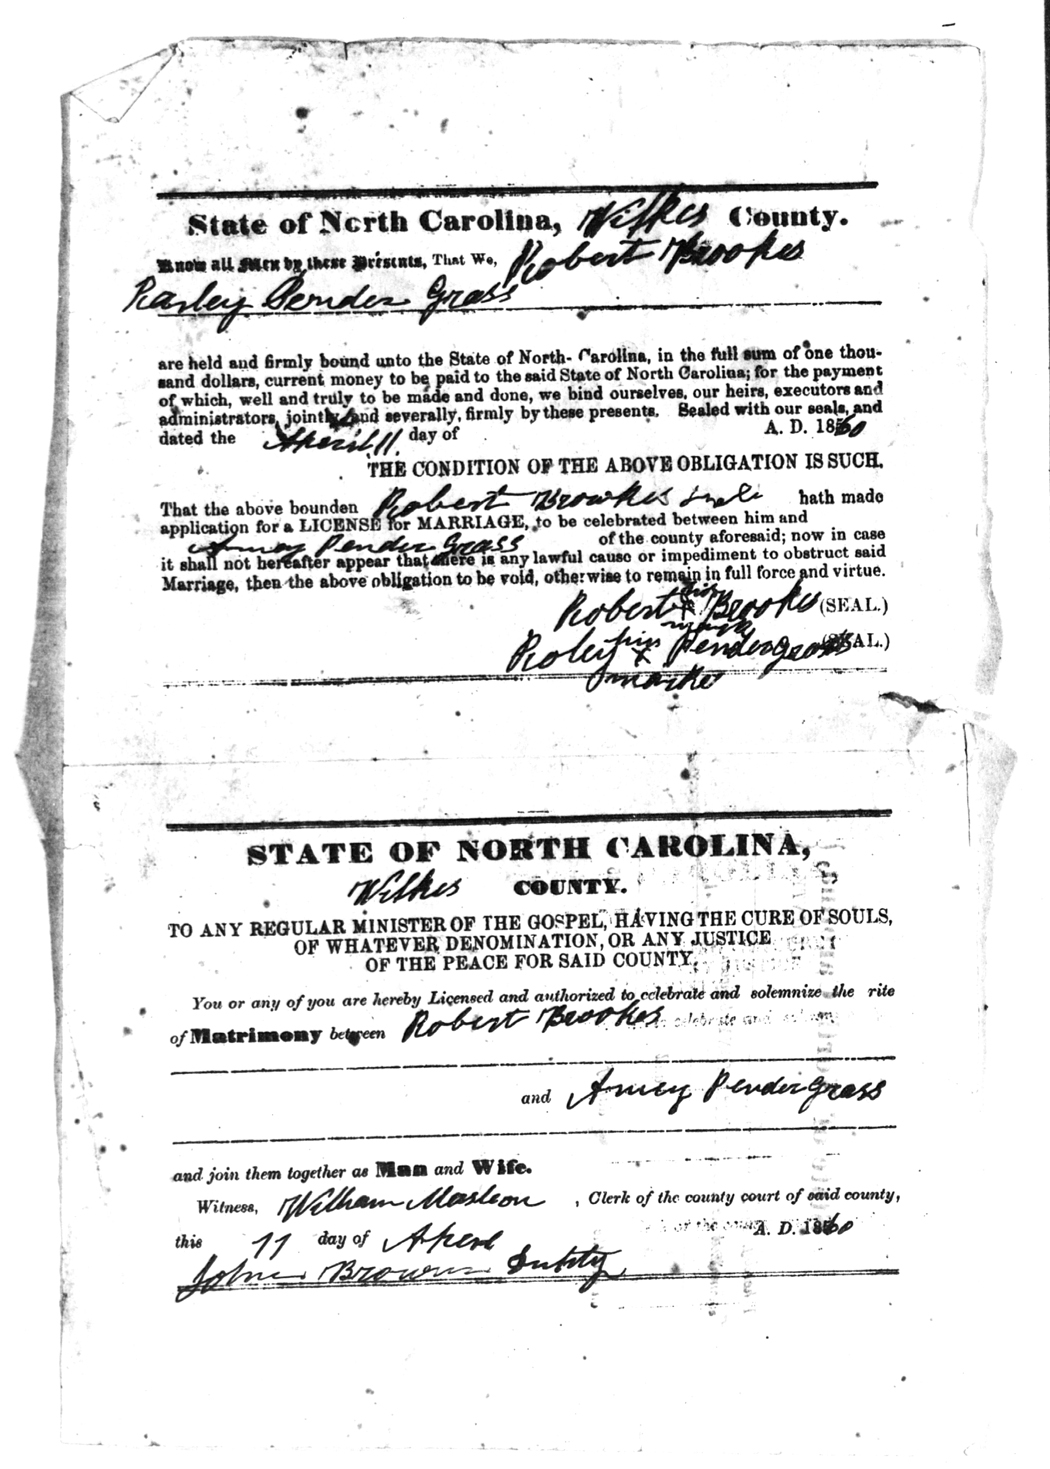 State of North Carolina, Wilkes County.
Know all Men by these Presents, That We, Robert Brookes
Rarley Pender Grass
are held and firmly bound unto the State of North-Carolina, in the full sum of one thou-
sand dollars, current money to be paid to the said State of North Carolina; for the payment
of which, well and truly to be made and done, we bind ourselves, our heirs, executors and
administrators, jointly and severally, firmly by these presents. Sealed with our seals, and
dated the Aperil 11. day of A. D. 1860
THE CONDITION OF THE ABOVE OBLIGATION IS SUCH,
That the above bounden Robert Browkes hath made
application for a LICENSE for MARRIAGE, to be celebrated between him and
Amey Pender Grass of the county aforesaid; now in case
it shall not hereafter appear that there is any lawful cause or impediment to obstruct said
Marriage, then the above obligation to be void, otherwise to remain in full force and virtue.
his
Robert X Brookes (SEAL.)
mark
his
Roley X Pendergrass (SEAL.)
marke
STATE OF NORTH CAROLINA,
Wilkes COUNTY.
TO ANY REGULAR MINISTER OF THE GOSPEL, HAVING THE CURE OF SOULS,
OF WHATEVER DENOMINATION, OR ANY JUSTICE
OF THE PEACE FOR SAID COUNTY.
You or any of you are hereby Licensed and authorized to celebrate and solemnize the rite
of Matrimony between Robert Brookes
and Amey Pender Grass
and join them together as Man and Wife.
Witness, William Masteon, Clerk of the county court of said county,
this 11 day of Aperl A. D. 1860
John Brown